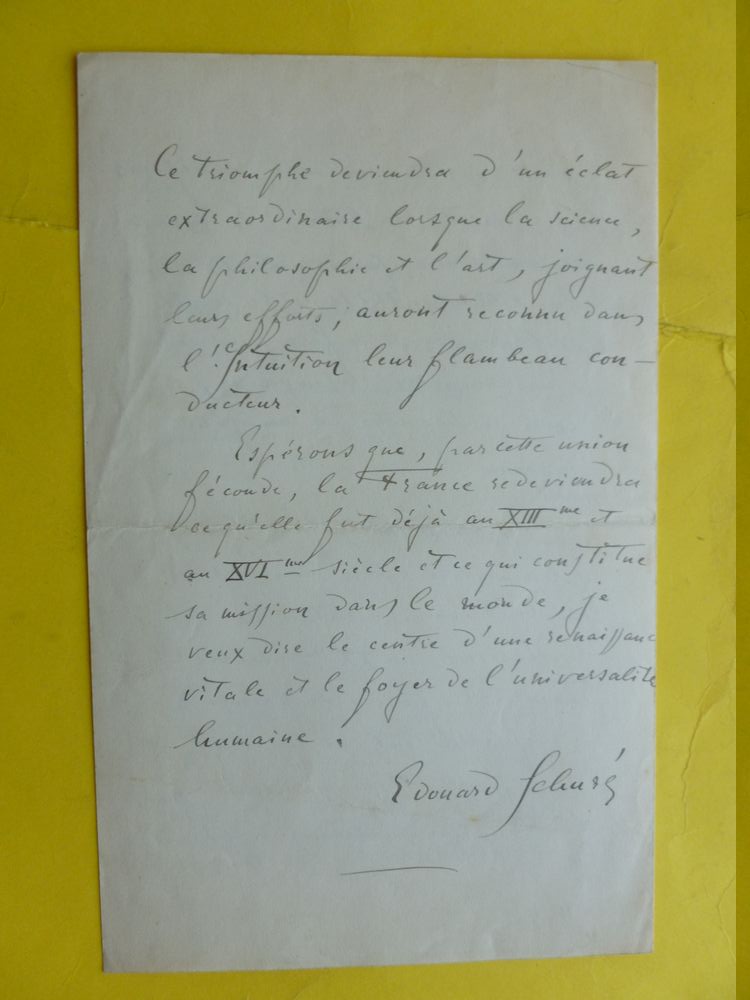 Ce triomphe deviendra d'un éclat
extraordinaire lorsque la science,
la philosophie et l'art, joignant
leurs efforts, auront reconnu dans
l'Intuition leur flambeau con-
ducteur.
Espérons que, par cette union
féconde, la France redeviendra
ce qu'elle fut déjà au XIII me et
au XVI me siècle et ce qui constitue
sa mission dans le monde, je
veux dire le centre d'une renaissance
vitale et le foyer de l'universalité
humaine.
Edouard Schuré